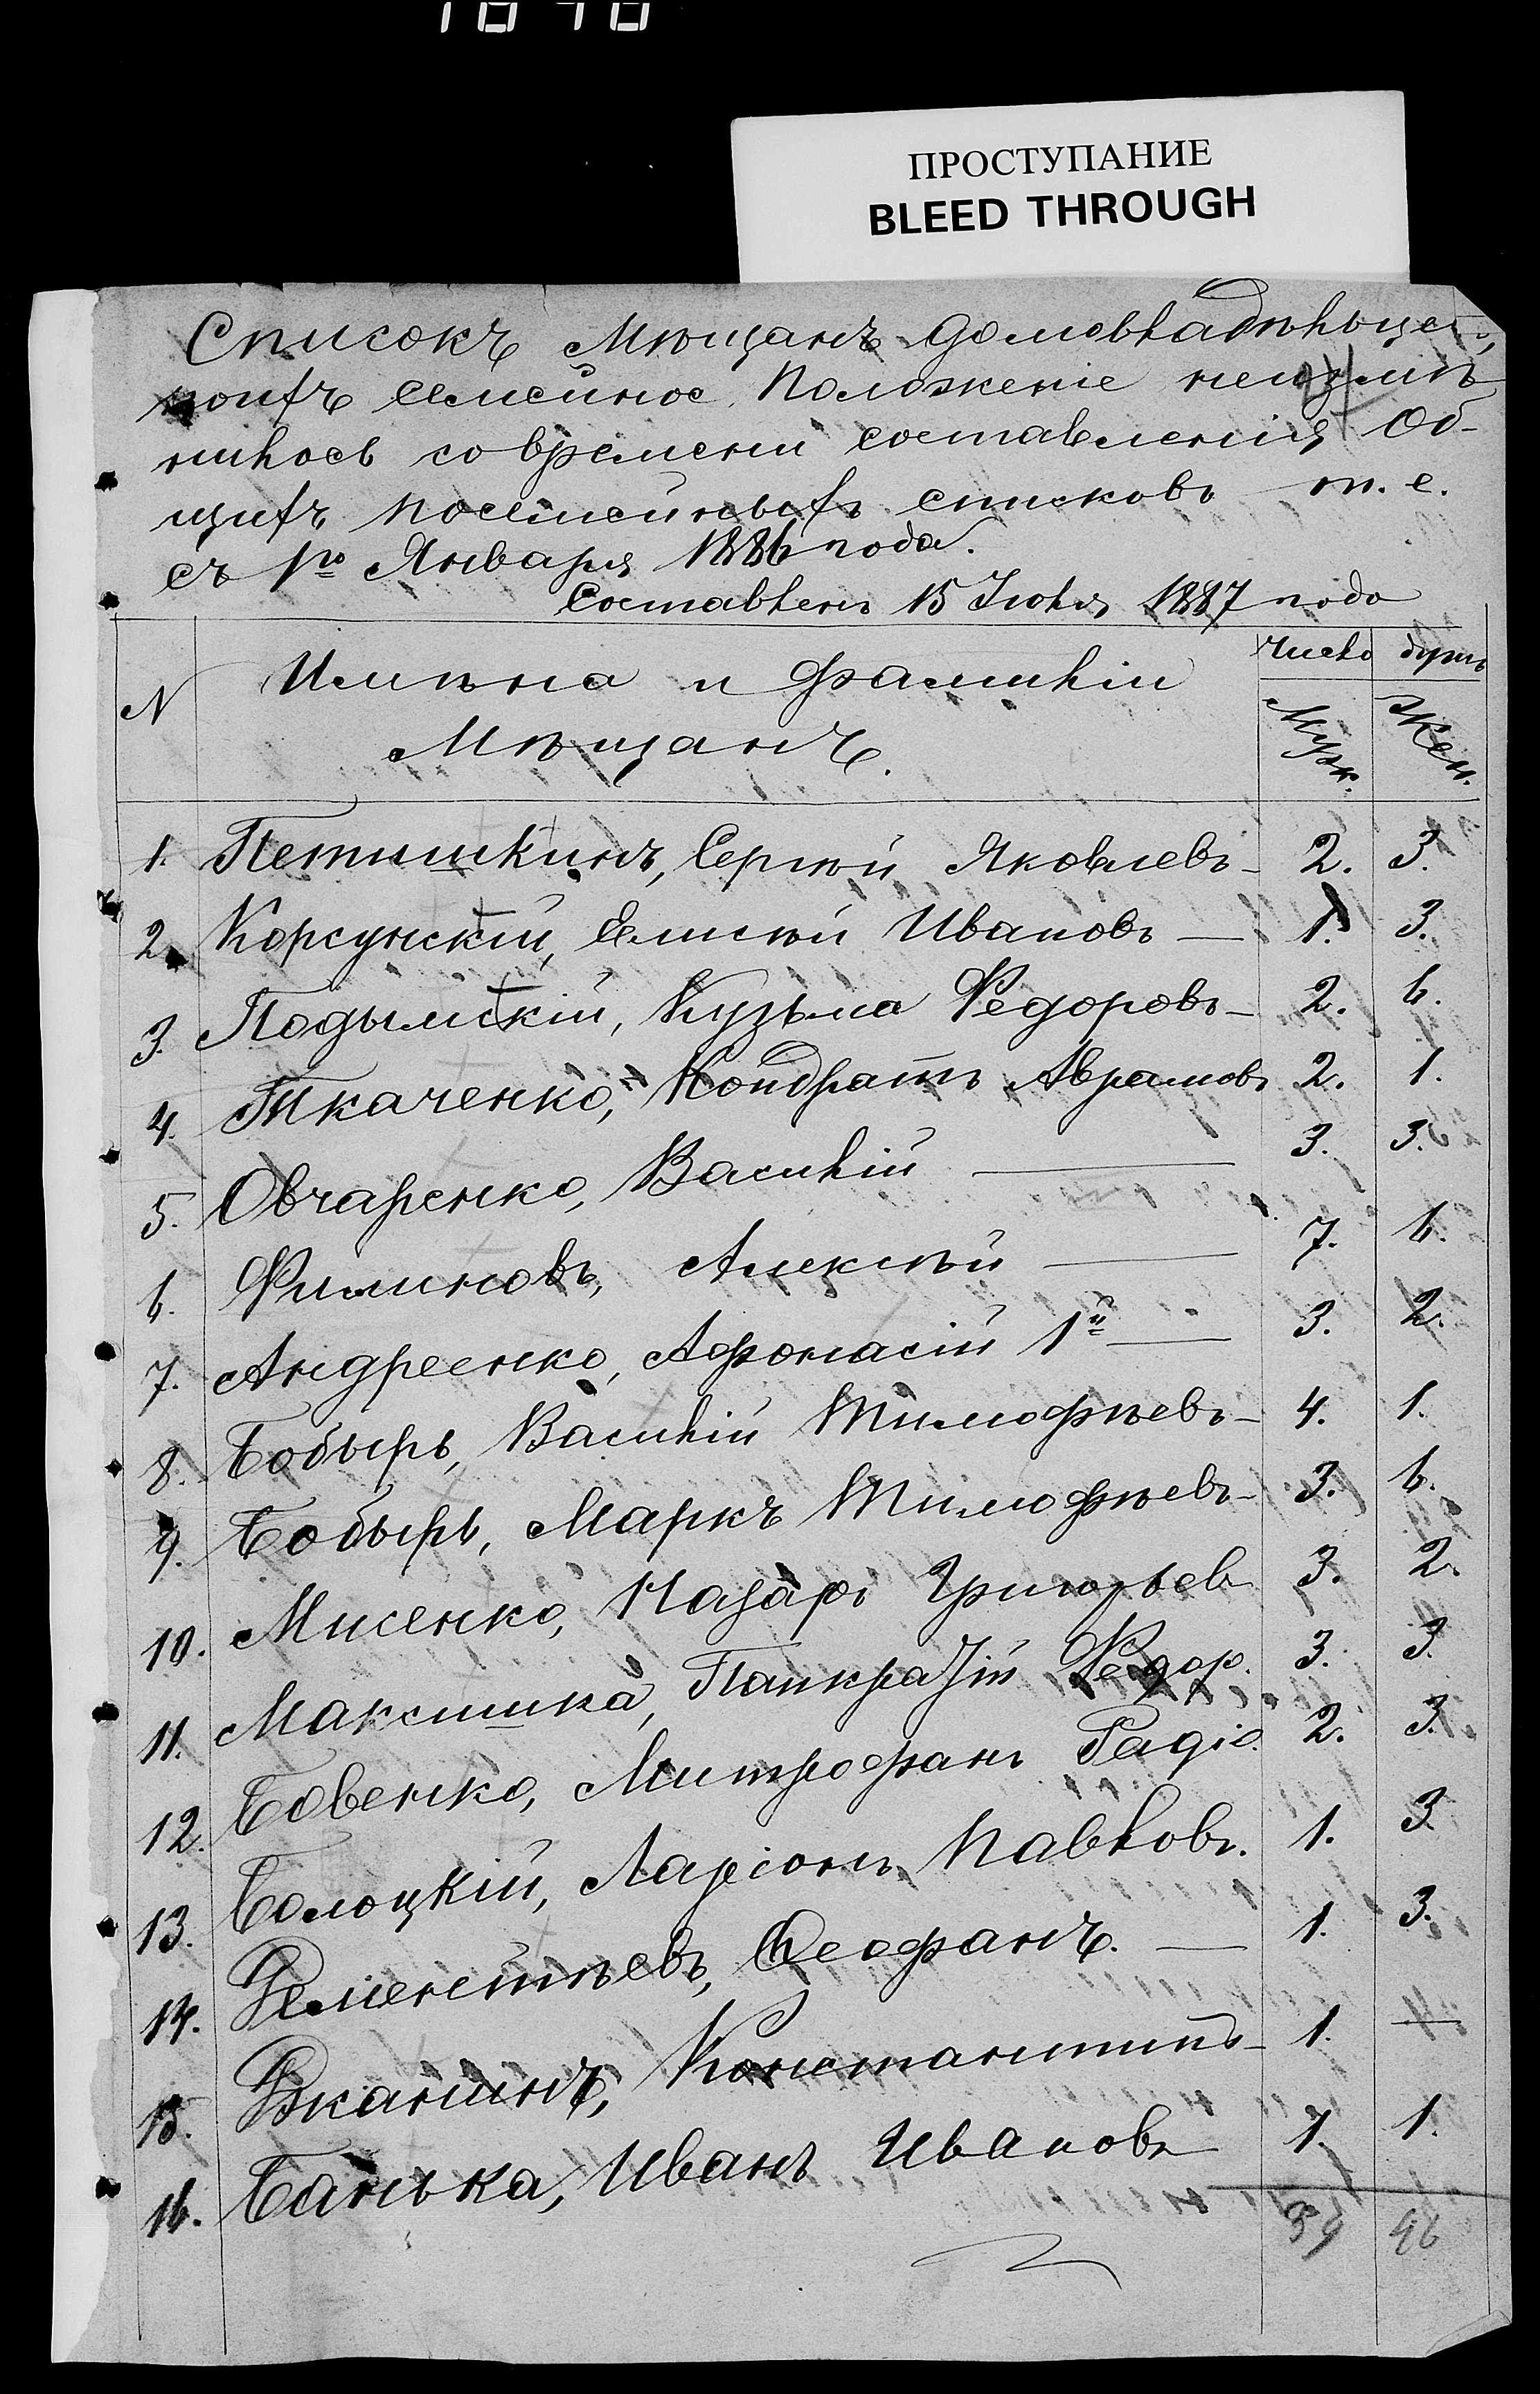 ПРОСТУПАНИЕ
BLEED THROUGH
Списокъ Мѣщанъ домовладѣльцей,
коихъ семейное положеніе неизмѣ
нилось современи составленія Об-
щихъ посемейныхъ списковъ т. е.
съ 1го Января 1886 года.
Составленъ 15 Іюля 1887 года
N Имѣна и фамиліи Мѣщанъ. Число душъ
Муж. Жен.
1. Петишкинъ, Сергѣй Яковлевъ - 2. 3.
2. Корсунскій, Елисѣй Ивановъ — 1. 3.
3. Подымскій, Кузьма Федоровъ - 2. 6.
4. Ткаченко, Кондратъ Аврамовъ 2. 1.
5. Овчаренко, Василій — 3. 3.
6. Филиновъ, Алексѣй — 7. 6.
7. Андреенко, Афонасій 1й — 3. 2.
8. Бобырь, Василій Тимофѣевъ - 4. 1.
9. Бобырь, Маркъ Тимофѣевъ - 3. 6.
10. Мисенко, Назаръ Григорьев 3. 2.
11. Максимка, Панкратій Федор. 3. 3.
12. Бовенко, Митрофанъ Радіо. 2. 3.
13. Болоцкій, Ларіонъ Павловъ. 1. 3.
14. Рементьевъ, Феофанъ. — 1. 3.
15. Вканинъ, Константинъ - 1. —
16. Банька, Иванъ Ивановъ 1. 1.
39 46